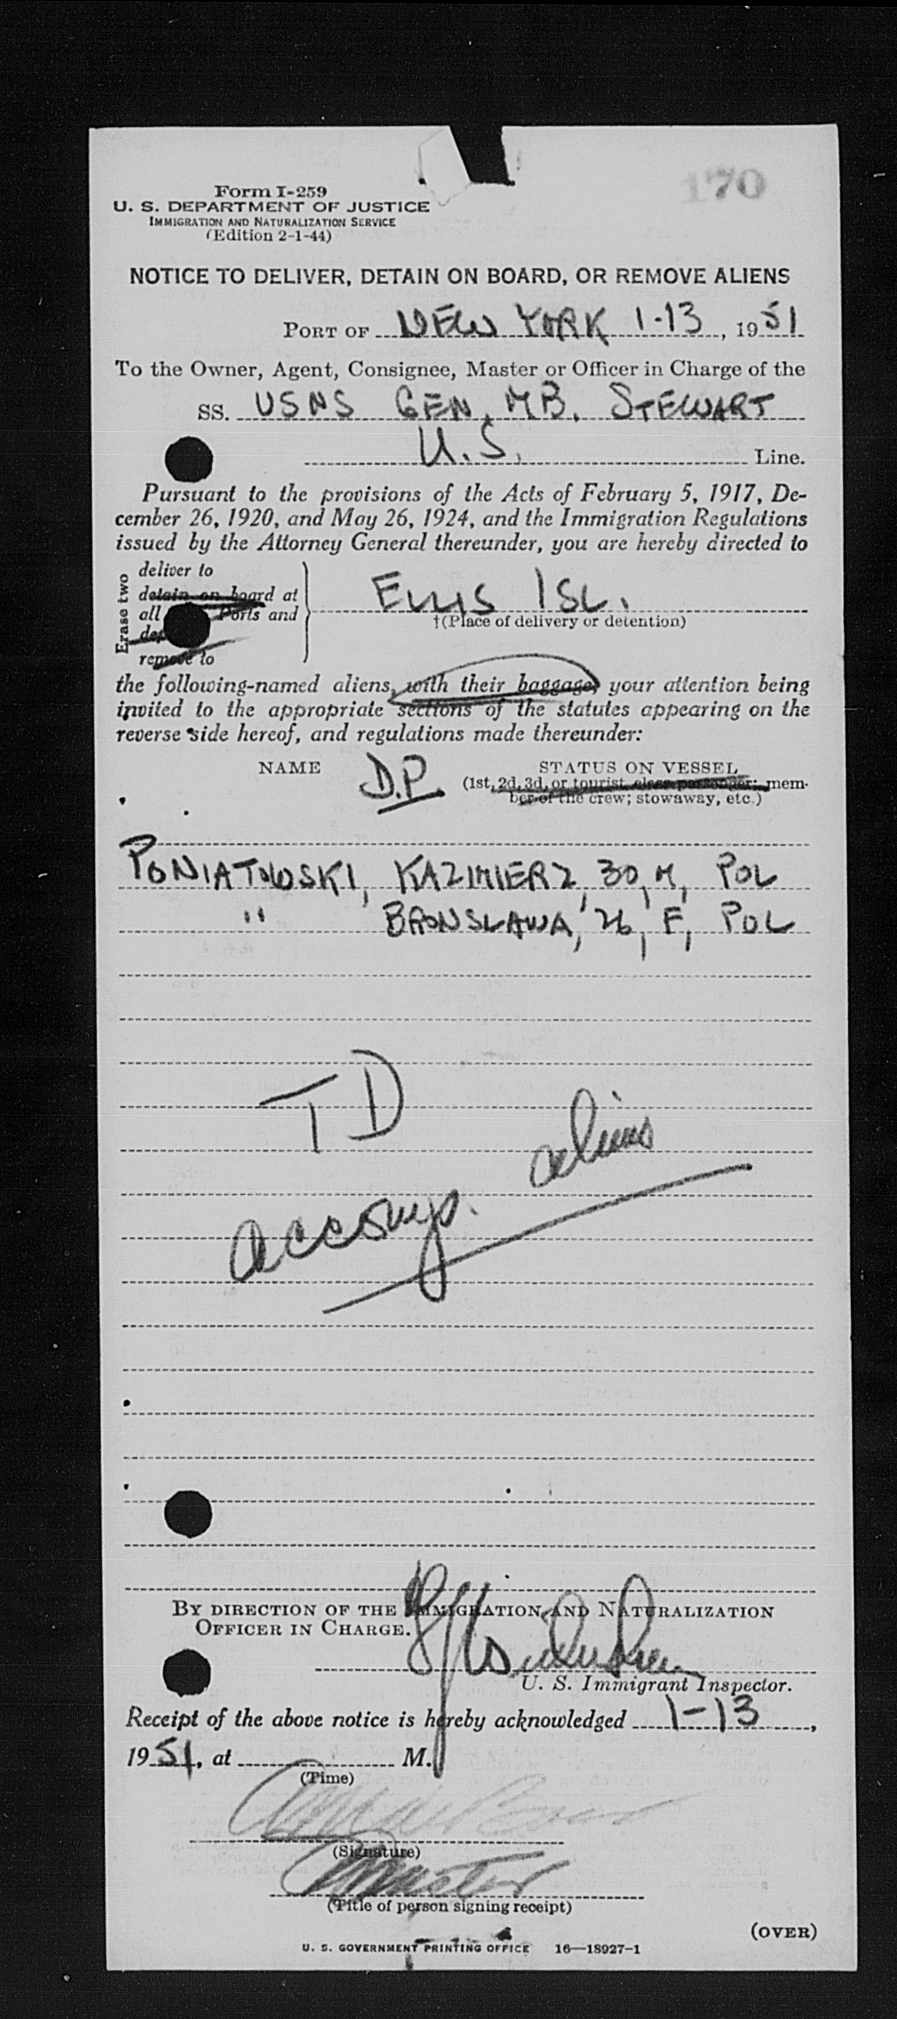 170
Form I-259
U. S. DEPARTMENT OF JUSTICE
IMMIGRATION AND NATURALIZATION SERVICE
(Edition 2-1-44)
NOTICE TO DELIVER, DETAIN ON BOARD, OR REMOVE ALIENS
PORT OF NEW YORK 1-13, 1951
To the Owner, Agent, Consignee, Master or Officer in Charge of the
SS. USNS GEN. MB. STEWART
U.S. Line.
Pursuant to the provisions of the Acts of February 5, 1917, De-
cember 26, 1920, and May 26, 1924, and the Immigration Regulations
issued by the Attorney General thereunder, you are hereby directed to
Erase two
deliver to
detain on board at
all Ports and
remove to
ELLIS ISL.
†(Place of delivery or detention)
the following-named aliens, with their baggage, your attention being
invited to the appropriate sections of the statutes appearing on the
reverse side hereof, and regulations made thereunder:
NAME D.P. STATUS ON VESSEL
(1st, 2d, 3d, or tourist class passenger; mem-
ber of the crew; stowaway, etc.)
PONIATOWSKI, KAZIMIERZ, 30, M, POL
" BRONSLAWA, 26, F, POL
TD
accomp. aliens
BY DIRECTION OF THE IMMIGRATION AND NATURALIZATION
OFFICER IN CHARGE.
U. S. Immigrant Inspector.
Receipt of the above notice is hereby acknowledged 1-13,
1951, at M.
(Time)
(Signature)
Master
(Title of person signing receipt)
(OVER)
U. S. GOVERNMENT PRINTING OFFICE 16—18927-1